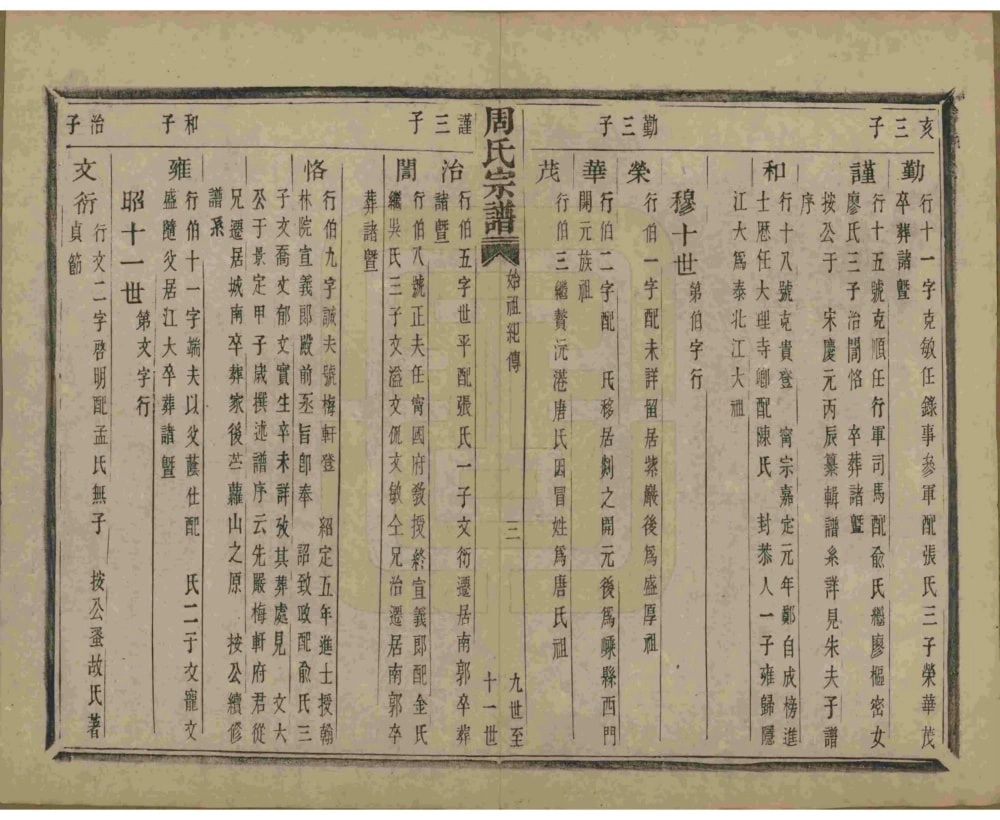 亥三子
勤 行十一字克敏任錄事參軍配張氏三子榮華茂
卒葬諸暨
謹 行十五號克順任行軍司馬配俞氏繼廖樞密女
廖氏三子治誾恪 卒葬諸暨
按公于 宋慶元丙辰纂輯譜系詳見朱夫子譜
序
和 行十八號克貴登 甯宗嘉定元年鄭自成榜進
士歷任大理寺卿配陳氏 封恭人一子雍歸隱
江大爲泰北江大祖
穆十世 第伯字行
勤三子
榮 行伯一字配未詳留居紫巖後爲盛厚祖
華 行伯二字配 氏移居剡之開元後爲嵊縣西門
開元族祖
茂 行伯三繼贅沅港唐氏因冒姓爲唐氏祖
周氏宗譜 始祖紀傳 三 九世至十一世
謹三子
治 行伯五字世平配張氏一子文衍遷居南郭卒葬
諸暨
誾 行伯八號正夫任甯國府教授終宣義郎配金氏
繼吳氏三子文溢文侃文敏仝兄治遷居南郭卒
葬諸暨
恪 行伯九字誠夫號梅軒登 紹定五年進士授翰
林院宣義郎殿前丞旨卽奉 詔致政配俞氏三
子文喬文郁文實生卒未詳攷其葬處見 文大
公于景定甲子歲撰述譜序云先嚴梅軒府君從
兄遷居城南卒葬家後苎蘿山之原 按公續修
譜系
和子
雍 行伯十一字端夫以父蔭仕配 氏二子文寵文
盛隨父居江大卒葬諸暨
昭十一世 第文字行
治子
文衍 行文二字啓明配孟氏無子 按公蚤故氏著
貞節